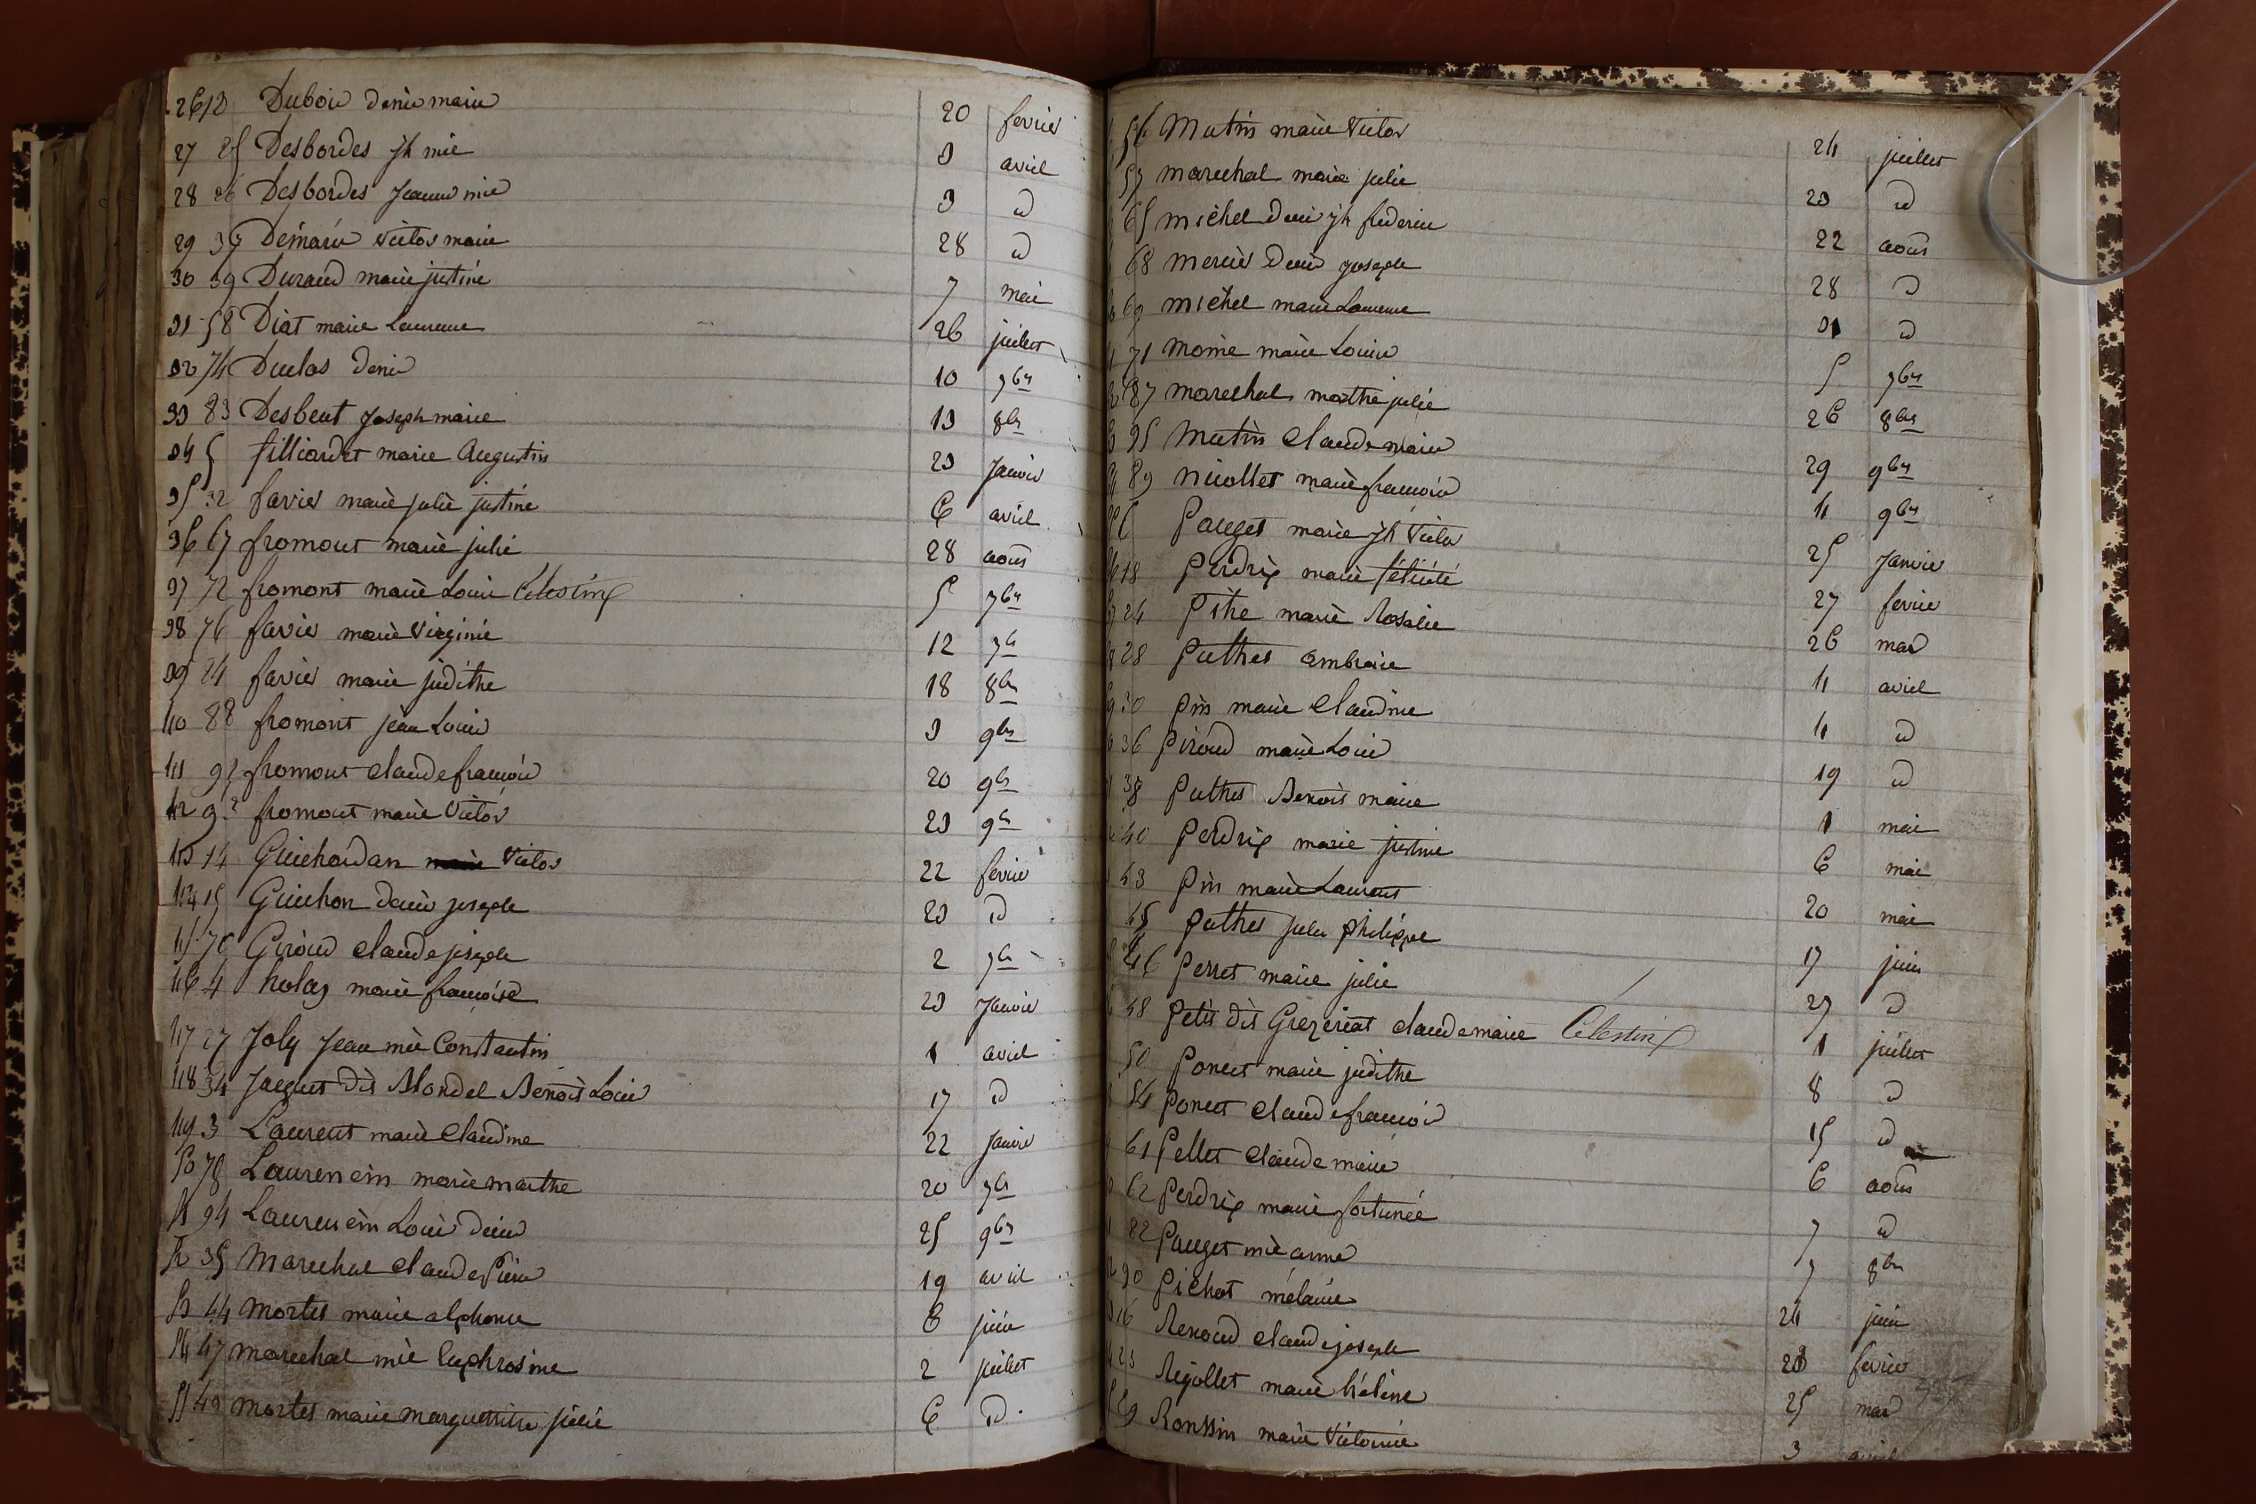 26 13 Dubois denis marie 20 fevrier
27 25 Desbordes jh mie 3 avril
28 26 Desbordes Jeanne mie 3 id
29 37 Démaris Victor marie 28 id
30 39 Durand marie justine 7 mai
31 58 Diat marie Laurence 26 juillet
32 74 Duclos denis 10 7bre
33 83 Desbeut Joseph marie 13 8bre
34 5 filliardet marie Augustin 23 Janvier
35 32 favier marie julie justine 6 avril
36 67 fromont marie julie 28 aout
37 72 fromont marie Louis Célestin 5 7bre
38 76 favier marie Virginie 12 7bre
39 84 favier marie judithe 18 8bre
40 88 fromont jean Louis 3 9bre
41 92 fromont claude françois 20 9bre
42 93 fromont marie Victor 23 9bre
43 14 Guichardan Victor 22 fevrier
44 15 Guichon denis joseph 23 id
45 70 Giroud claude joseph 2 7bre
46 4 holay marie françoise 23 Janvier
47 27 Joly Jean mie Constantin 1 avril
48 34 Jacquet dit Blondel Benoit Louis 17 id
49 3 Laurent marie Claudine 22 Janvier
50 78 Laurencin marie marthe 20 7bre
51 94 Laurencin Louis denis 25 9bre
52 35 Marechal claude Pierre 19 avril
53 44 Mortel marie alphonse 8 juin
54 47 marechal mie Euphrosine 2 juillet
55 49 mortel marie marguerite julie 6 id
56 Matin marie Victor 24 juillet
57 marechal marie julie 23 id
65 michel denis jh frederic 22 aout
68 mercier denis joseph 28 id
69 michel marie Laurence 31 id
71 moine marie Louise 5 7bre
87 marechal marthe julie 26 8bre
95 Matin Claude marie 29 9bre
89 nicollet marie françoise 4 9bre
6 Pauget marie jh Victor 25 Janvier
18 Perdrix marie félicité 27 fevrier
24 Pithe marie Rosalie 26 mars
28 Puthet ambroise 4 avril
30 Pin marie Claudine 4 id
36 Piroud marie Louis 19 id
38 Puthet Benoit marie 1 mai
40 Perdrix marie justine 6 mai
43 Pin marie Laurent 20 mai
45 Puthet jules philippe 17 juin
46 Perret marie julie 27 id
48 Petit dit Grezeriat claude marie Célestin 1 juillet
50 Poncet marie judithe 8 id
54 Poncet claude françois 15 id
61 Pellet claude marie 6 aout
62 Perdrix marie fortunée 7 id
82 Pauget mie anne 7 8bre
90 Pichot mélanie 24 juin
16 Renoud claude joseph 28 fevrier
23 Rigollet marie hélène 25 mars
29 Ronssin marie Victorine 3 avril